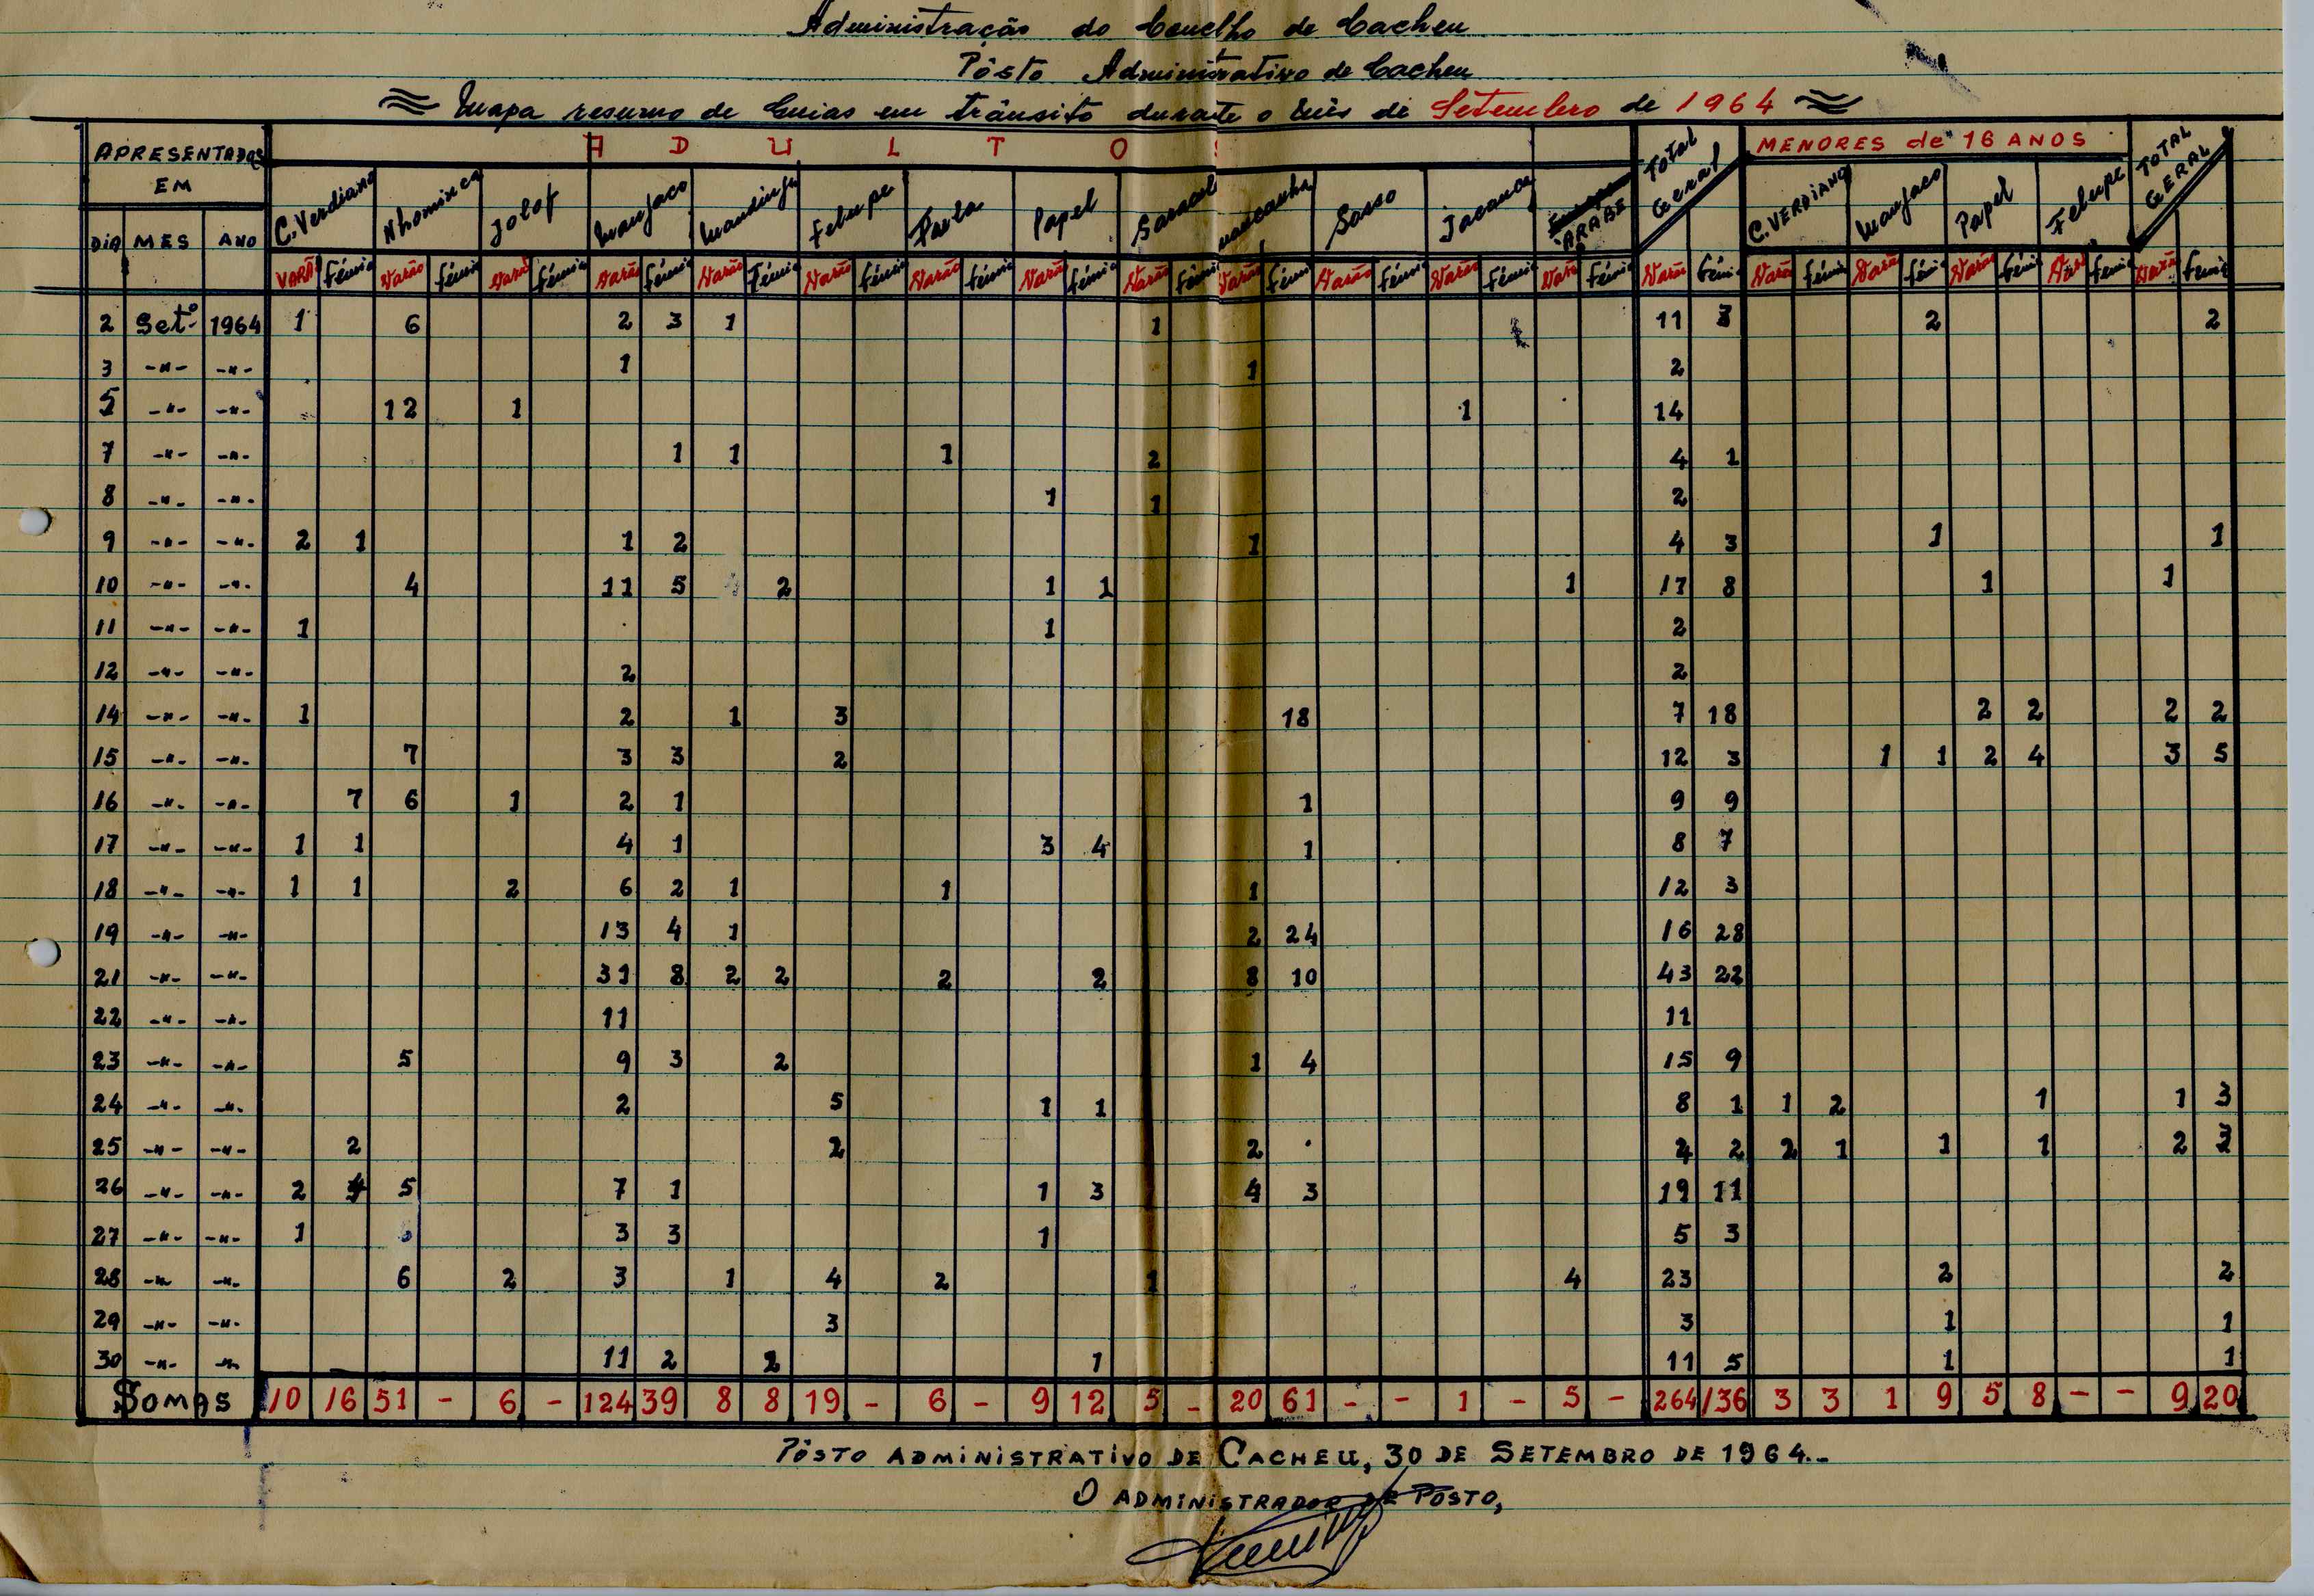 Administração do Concelho de Cacheu
Pôsto Administrativo de Cacheu
Mapa resumo de Guias em trânsito durante o mês de Setembro de 1964
APRESENTADAS EM A D U L T O S Total Geral MENORES de 16 ANOS TOTAL GERAL
DIA MES ANO C. Verdiano Nhominca Jolof Manjaco Mandinga Felupe Fula Papel Saracol Mancanha Sosso Jacanca ARABE C. VERDIANO Manjaco Papel Felupe
VARÃO Fémia Varão Fémia Varão Fémia Varão Fémia Varão Fémia Varão Fémia Varão Fémia Varão Fémia Varão Fémia Varão Fémia Varão Fémia Varão Fémia Varão Fémia Varão Fémia Varão Fémia Varão Fémia Varão Fémia Varão Fémia Varão Fémia
2 Setº 1964 1 6 2 3 1 1 11 3 2 2
3 -"- -"- 1 1 2
5 -"- -"- 12 1 1 14
7 -"- -"- 1 1 1 2 4 1
8 -"- -"- 1 1 2
9 -"- -"- 2 1 1 2 1 4 3 1 1
10 -"- -"- 4 11 5 2 1 1 1 17 8 1 1
11 -"- -"- 1 1 2
12 -"- -"- 2 2
14 -"- -"- 1 2 1 3 18 7 18 2 2 2 2
15 -"- -"- 7 3 3 2 12 3 1 1 2 4 3 5
16 -"- -"- 7 6 1 2 1 1 9 9
17 -"- -"- 1 1 4 1 3 4 1 8 7
18 -"- -"- 1 1 2 6 2 1 1 1 12 3
19 -"- -"- 13 4 1 2 24 16 28
21 -"- -"- 31 8 2 2 2 2 8 10 43 22
22 -"- -"- 11 11
23 -"- -"- 5 9 3 2 1 4 15 9
24 -"- -"- 2 5 1 1 8 1 1 2 1 1 3
25 -"- -"- 2 2 2 4 2 2 1 1 1 2 3
26 -"- -"- 2 4 5 7 1 1 3 4 3 19 11
27 -"- -"- 1 3 3 1 5 3
28 -"- -"- 6 2 3 1 4 2 1 4 23 2 2
29 -"- -"- 3 3 1 1
30 -"- -"- 11 2 2 1 11 5 1 1
SOMAS 10 16 51 - 6 - 124 39 8 8 19 - 6 - 9 12 5 - 20 61 - - 1 - 5 - 264 136 3 3 1 9 5 8 - - 9 20
PÔSTO ADMINISTRATIVO DE CACHEU, 30 DE SETEMBRO DE 1964.-
O ADMINISTRADOR DE POSTO,